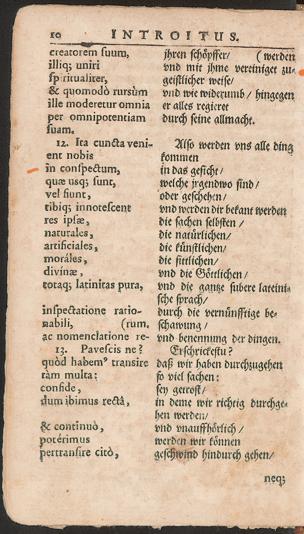 10 INTROITUS.
creatorem suum, jhren schöpffer/ (werden
illiq; uniri vnd mit jhme vereiniget zu-
spiritualiter, geistlicher weise/
& quomodò rursùm vnd wie widerumb / hingegen
ille moderetur omnia er alles regieret
per omnipotentiam durch seine allmacht.
suam.
12. Ita cuncta veni- Also werden vns alle ding
ent nobis kommen
in conspectum, in das gesicht/
quæ usq; sunt, welche jrgendwo sind/
vel fiunt, oder geschehen/
tibiq; innotescent vnd werden dir bekant werden
res ipsæ, die sachen selbsten /
naturales, die natürlichen/
artificiales, die künstlichen/
moráles, die sittlichen/
divinæ, vnd die Göttlichen/
totaq; latinitas pura, vnd die gantze subere lateini-
sche sprach/
inspectatione ratio- durch die vernünfftige be-
nabili, (rum. schawung/
ac nomenclatione re- vnd benennung der dingen.
13. Pavescis ne? Erschrickestu?
quòd habemꝰ transire daß wir haben durchzugehen
tàm multa: so viel sachen:
confide, sey getrost/
dum ibimus rectà, in deme wir richtig durchge-
hen werden/
& continuò, vnd vnauffhörlich /
potérimus werden wir können
pertransire citò, geschwind hindurch gehen/
neq;